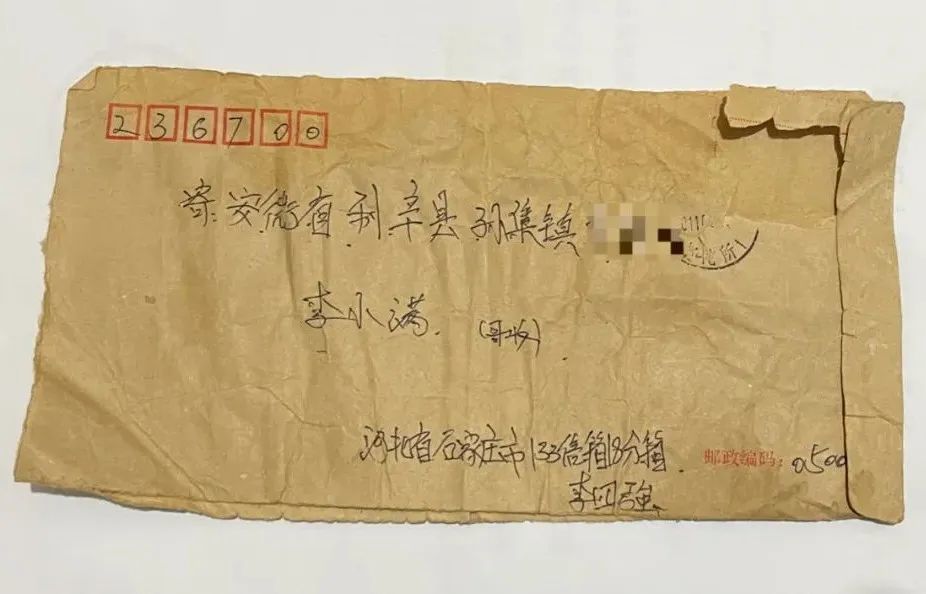 236700
寄:安徽省利辛县孙集镇
李小满.
(哥收)
河北省石家庄市133信箱18分箱.
邮政编码:0500
李四强